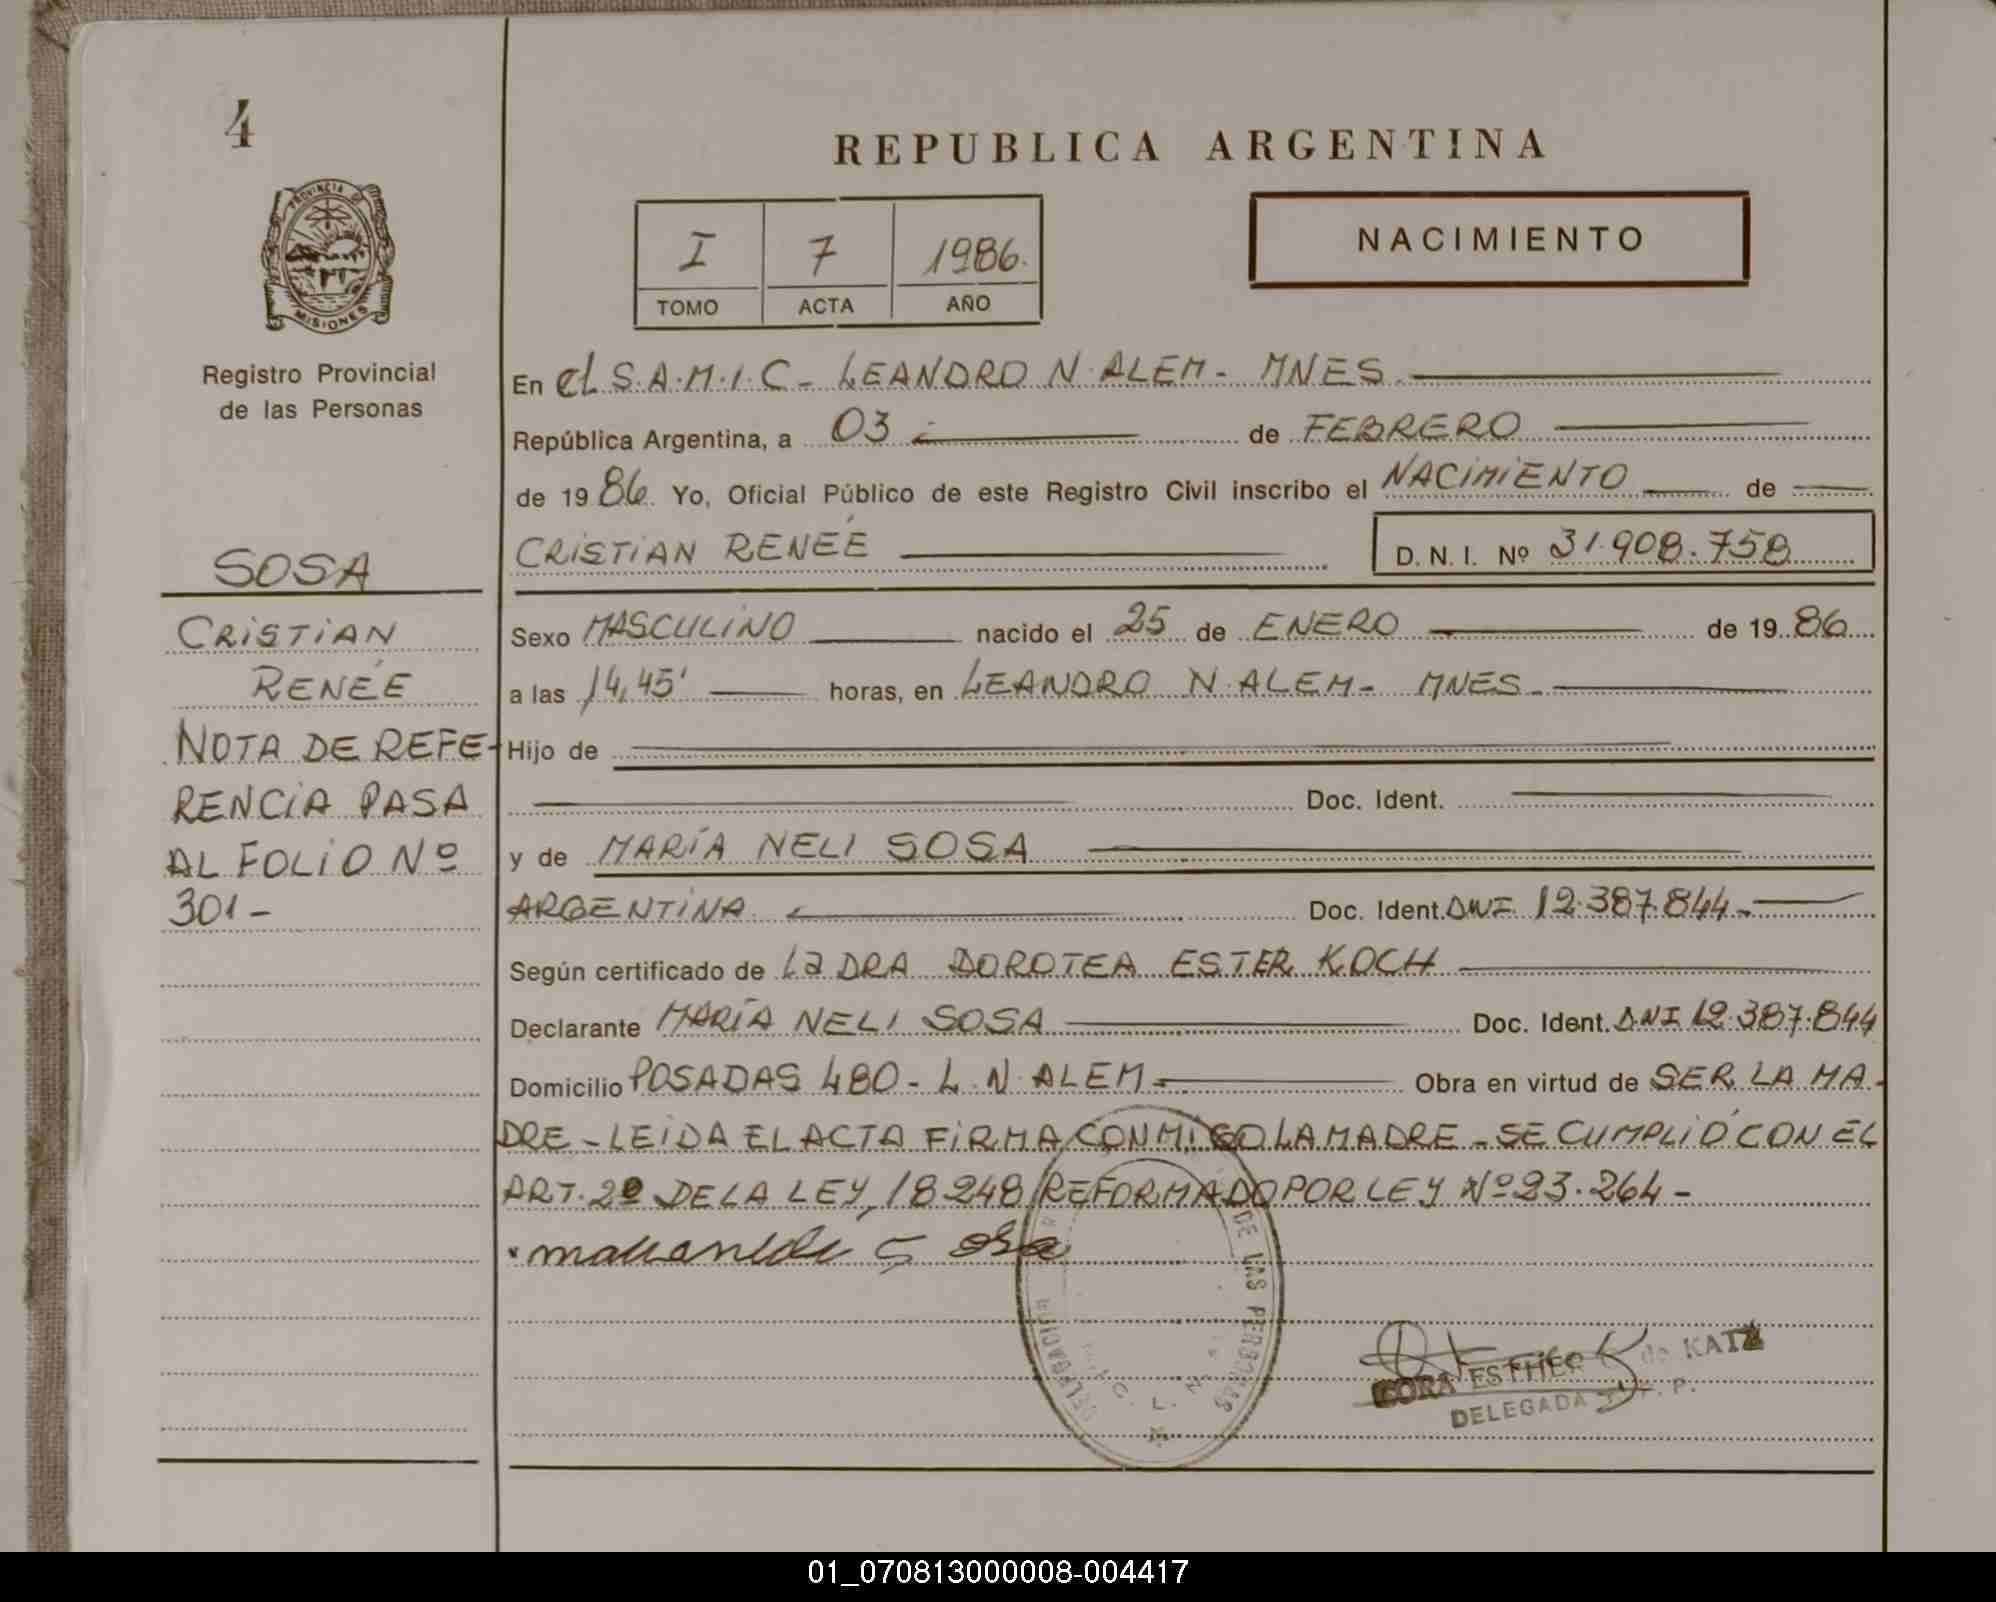 4
PROVINCIA DE
MISIONES
Registro Provincial
de las Personas
SOSA
CRISTIAN
RENÉE
NOTA DE REFE-
RENCIA PASA
AL FOLIO Nº
301-
REPUBLICA ARGENTINA
I 7 1986.
TOMO ACTA AÑO
NACIMIENTO
En el S.A.M.I.C- LEANDRO N. ALEM- MNES.
República Argentina, a 03 de FEBRERO
de 1986. Yo, Oficial Público de este Registro Civil inscribo el NACIMIENTO de
CRISTIAN RENÉE D. N. I. Nº 31.908.758
Sexo MASCULINO nacido el 25 de ENERO de 1986
a las 14,45' horas, en LEANDRO N. ALEM- MNES-
Hijo de
Doc. Ident.
y de MARÍA NELI SOSA
ARGENTINA Doc. Ident. DNI 12.387.844-
Según certificado de La DRA DOROTEA ESTER KOCH
Declarante MARÍA NELI SOSA Doc. Ident. DNI 12.387.844
Domicilio POSADAS 480- L.N. ALEM- Obra en virtud de SER LA MA-
DRE- LEIDA EL ACTA FIRMA CONMIGO LA MADRE- SE CUMPLIÓ CON EL
ART. 2º DE LA LEY 18248 REFORMADO POR LEY Nº 23.264-
DE LAS PERSONAS
DELEGACION
L. N.
ESTHER K de KATZ
DELEGADA P.
01_070813000008-004417